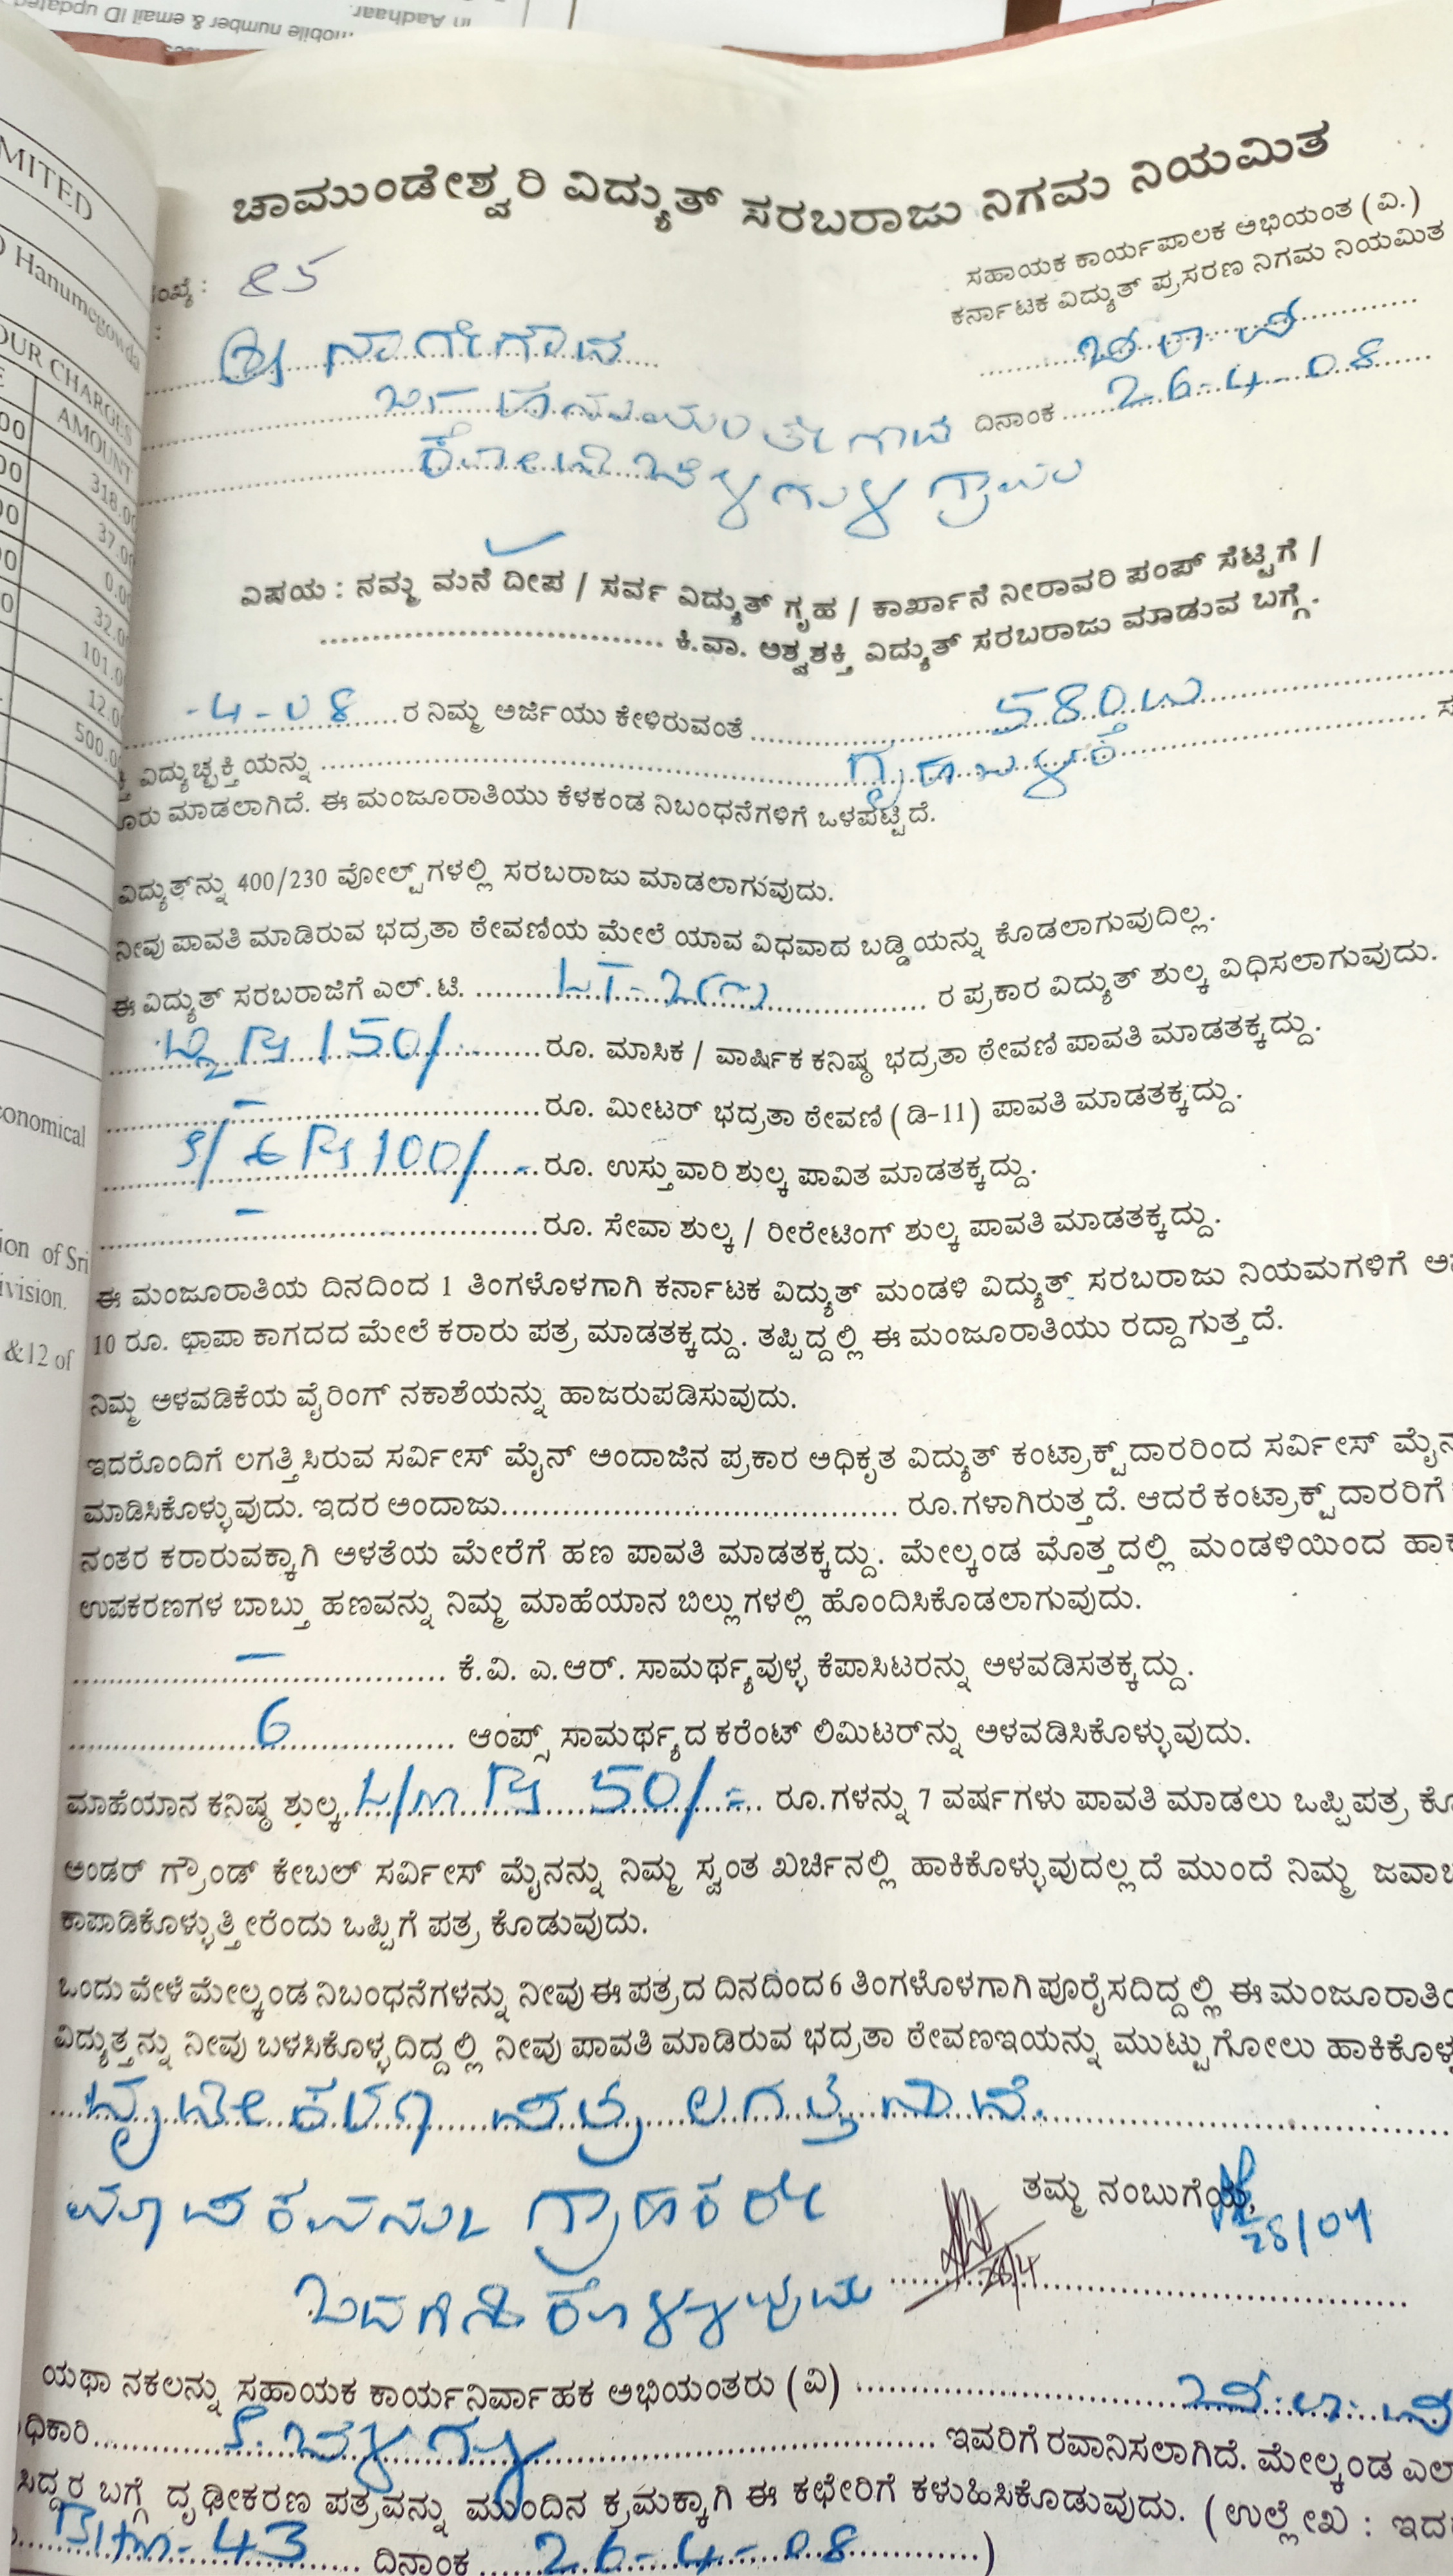 mobile number & email ID updated
in Aadhaar.
MITED
Hanumegowda
OUR CHARGES
AMOUNT
318.00
37.00
0.00
32.00
101.0
12.0
500.0
conomical
ion of Sri
ivision.
&12 of
ಚಾಮುಂಡೇಶ್ವರಿ ವಿದ್ಯುತ್ ಸರಬರಾಜು ನಿಗಮ ನಿಯಮಿತ
ಸಹಾಯಕ ಕಾರ್ಯಪಾಲಕ ಅಭಿಯಂತ (ವಿ.)
ಕರ್ನಾಟಕ ವಿದ್ಯುತ್ ಪ್ರಸರಣ ನಿಗಮ ನಿಯಮಿತ
ಂಖ್ಯೆ : 85
ಶ್ರೀ ನಾಗೇಗೌಡ
ದಿನಾಂಕ 26-4-08
ಬಿನ್ ಹನುಮಂತೇಗೌಡ
ಕೋಡಿಬೆಳಗುಳ ಗ್ರಾಮ
ವಿಷಯ : ನಮ್ಮ ಮನೆ ದೀಪ / ಸರ್ವ ವಿದ್ಯುತ್ ಗೃಹ / ಕಾರ್ಖಾನೆ ನೀರಾವರಿ ಪಂಪ್ ಸೆಟ್ಟಿಗೆ /
ಕಿ.ವಾ. ಅಶ್ವಶಕ್ತಿ ವಿದ್ಯುತ್ ಸರಬರಾಜು ಮಾಡುವ ಬಗ್ಗೆ.
-4-08 ರ ನಿಮ್ಮ ಅರ್ಜಿಯು ಕೇಳಿರುವಂತೆ 580
ವಿದ್ಯುಚ್ಛಕ್ತಿಯನ್ನು ಗೃಹಬಳಕೆ
ೂರು ಮಾಡಲಾಗಿದೆ. ಈ ಮಂಜೂರಾತಿಯು ಕೆಳಕಂಡ ನಿಬಂಧನೆಗಳಿಗೆ ಒಳಪಟ್ಟಿದೆ.
ವಿದ್ಯುತ್‌ನ್ನು 400/230 ವೋಲ್ಟ್‌ಗಳಲ್ಲಿ ಸರಬರಾಜು ಮಾಡಲಾಗುವುದು.
ನೀವು ಪಾವತಿ ಮಾಡಿರುವ ಭದ್ರತಾ ಠೇವಣಿಯ ಮೇಲೆ ಯಾವ ವಿಧವಾದ ಬಡ್ಡಿಯನ್ನು ಕೊಡಲಾಗುವುದಿಲ್ಲ.
ಈ ವಿದ್ಯುತ್ ಸರಬರಾಜಿಗೆ ಎಲ್.ಟಿ. LT-2 ರ ಪ್ರಕಾರ ವಿದ್ಯುತ್ ಶುಲ್ಕ ವಿಧಿಸಲಾಗುವುದು.
Rs 150/- ರೂ. ಮಾಸಿಕ / ವಾರ್ಷಿಕ ಕನಿಷ್ಠ ಭದ್ರತಾ ಠೇವಣಿ ಪಾವತಿ ಮಾಡತಕ್ಕದ್ದು.
– ರೂ. ಮೀಟರ್ ಭದ್ರತಾ ಠೇವಣಿ (ಡಿ-11) ಪಾವತಿ ಮಾಡತಕ್ಕದ್ದು.
Rs 100/- ರೂ. ಉಸ್ತುವಾರಿ ಶುಲ್ಕ ಪಾವಿತ ಮಾಡತಕ್ಕದ್ದು.
– ರೂ. ಸೇವಾ ಶುಲ್ಕ / ರೀರೇಟಿಂಗ್ ಶುಲ್ಕ ಪಾವತಿ ಮಾಡತಕ್ಕದ್ದು.
ಈ ಮಂಜೂರಾತಿಯ ದಿನದಿಂದ 1 ತಿಂಗಳೊಳಗಾಗಿ ಕರ್ನಾಟಕ ವಿದ್ಯುತ್ ಮಂಡಳಿ ವಿದ್ಯುತ್ ಸರಬರಾಜು ನಿಯಮಗಳಿಗೆ
10 ರೂ. ಛಾಪಾ ಕಾಗದದ ಮೇಲೆ ಕರಾರು ಪತ್ರ ಮಾಡತಕ್ಕದ್ದು. ತಪ್ಪಿದ್ದಲ್ಲಿ ಈ ಮಂಜೂರಾತಿಯು ರದ್ದಾಗುತ್ತದೆ.
ನಿಮ್ಮ ಅಳವಡಿಕೆಯ ವೈರಿಂಗ್ ನಕಾಶೆಯನ್ನು ಹಾಜರುಪಡಿಸುವುದು.
ಇದರೊಂದಿಗೆ ಲಗತ್ತಿಸಿರುವ ಸರ್ವೀಸ್ ಮೈನ್ ಅಂದಾಜಿನ ಪ್ರಕಾರ ಅಧಿಕೃತ ವಿದ್ಯುತ್ ಕಂಟ್ರಾಕ್ಟ್‌ದಾರರಿಂದ ಸರ್ವೀಸ್ ಮೈನ
ಮಾಡಿಸಿಕೊಳ್ಳುವುದು. ಇದರ ಅಂದಾಜು ರೂ.ಗಳಾಗಿರುತ್ತದೆ. ಆದರೆ ಕಂಟ್ರಾಕ್ಟ್‌ದಾರರಿಗೆ
ನಂತರ ಕರಾರುವಕ್ಕಾಗಿ ಅಳತೆಯ ಮೇರೆಗೆ ಹಣ ಪಾವತಿ ಮಾಡತಕ್ಕದ್ದು. ಮೇಲ್ಕಂಡ ಮೊತ್ತದಲ್ಲಿ ಮಂಡಳಿಯಿಂದ ಹಾಕ
ಉಪಕರಣಗಳ ಬಾಬ್ತು ಹಣವನ್ನು ನಿಮ್ಮ ಮಾಹೆಯಾನ ಬಿಲ್ಲುಗಳಲ್ಲಿ ಹೊಂದಿಸಿಕೊಡಲಾಗುವುದು.
– ಕೆ.ವಿ. ಎ.ಆರ್. ಸಾಮರ್ಥ್ಯವುಳ್ಳ ಕೆಪಾಸಿಟರನ್ನು ಅಳವಡಿಸತಕ್ಕದ್ದು.
6 ಆಂಪ್ಸ್ ಸಾಮರ್ಥ್ಯದ ಕರೆಂಟ್ ಲಿಮಿಟರ್‌ನ್ನು ಅಳವಡಿಸಿಕೊಳ್ಳುವುದು.
ಮಾಹೆಯಾನ ಕನಿಷ್ಠ ಶುಲ್ಕ Rs 50/= ರೂ.ಗಳನ್ನು 7 ವರ್ಷಗಳು ಪಾವತಿ ಮಾಡಲು ಒಪ್ಪಿಪತ್ರ ಕೊ
ಅಂಡರ್ ಗ್ರೌಂಡ್ ಕೇಬಲ್ ಸರ್ವೀಸ್ ಮೈನನ್ನು ನಿಮ್ಮ ಸ್ವಂತ ಖರ್ಚಿನಲ್ಲಿ ಹಾಕಿಕೊಳ್ಳುವುದಲ್ಲದೆ ಮುಂದೆ ನಿಮ್ಮ ಜವಾಬ
ಕಾಪಾಡಿಕೊಳ್ಳುತ್ತೀರೆಂದು ಒಪ್ಪಿಗೆ ಪತ್ರ ಕೊಡುವುದು.
ಒಂದು ವೇಳೆ ಮೇಲ್ಕಂಡ ನಿಬಂಧನೆಗಳನ್ನು ನೀವು ಈ ಪತ್ರದ ದಿನದಿಂದ 6 ತಿಂಗಳೊಳಗಾಗಿ ಪೂರೈಸದಿದ್ದಲ್ಲಿ ಈ ಮಂಜೂರಾತಿ
ವಿದ್ಯುತ್ತನ್ನು ನೀವು ಬಳಸಿಕೊಳ್ಳದಿದ್ದಲ್ಲಿ ನೀವು ಪಾವತಿ ಮಾಡಿರುವ ಭದ್ರತಾ ಠೇವಣಇಯನ್ನು ಮುಟ್ಟುಗೋಲು ಹಾಕಿಕೊಳ್ಳ
ಪತ್ರ ಲಗತ್ತಿಸಿದೆ.
ಮಾಪಕವನ್ನು ಗ್ರಾಹಕರೇ
ಒದಗಿಸಿಕೊಳ್ಳುವುದು
ತಮ್ಮ ನಂಬುಗೆಯ,
28/04
26/4
ಯಥಾ ನಕಲನ್ನು ಸಹಾಯಕ ಕಾರ್ಯನಿರ್ವಾಹಕ ಅಭಿಯಂತರು (ವಿ)
ಧಿಕಾರಿ ಇವರಿಗೆ ರವಾನಿಸಲಾಗಿದೆ. ಮೇಲ್ಕಂಡ ಎಲ
ಸಿದ್ದರ ಬಗ್ಗೆ ದೃಢೀಕರಣ ಪತ್ರವನ್ನು ಮುಂದಿನ ಕ್ರಮಕ್ಕಾಗಿ ಈ ಕಛೇರಿಗೆ ಕಳುಹಿಸಿಕೊಡುವುದು. (ಉಲ್ಲೇಖ : ಇದ
43 ದಿನಾಂಕ 26-4-08 )